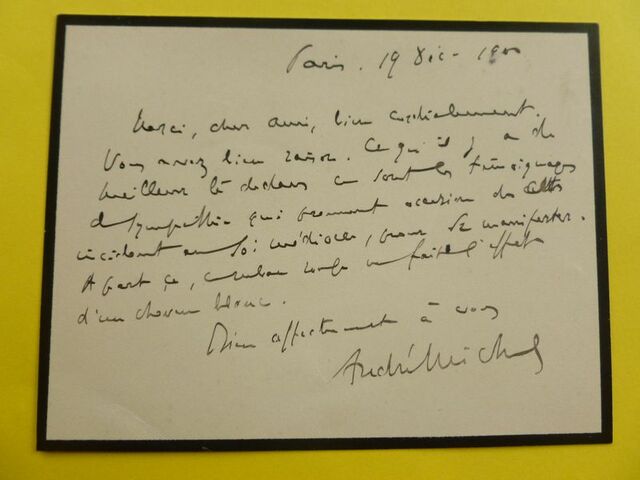 Paris. 19 Déc. 1900
Merci, cher ami, bien cordialement.
Vous avez bien raison. Ce qu'il y a de
meilleur là dedans ce sont les témoignages
de sympathie qui prennent occasion de cet
incident en soi médiocre, pour se manifester.
A part ça, ce ruban rouge me fait l'effet
d'un cheveu blanc.
Bien affectueusement à vous
André Michel